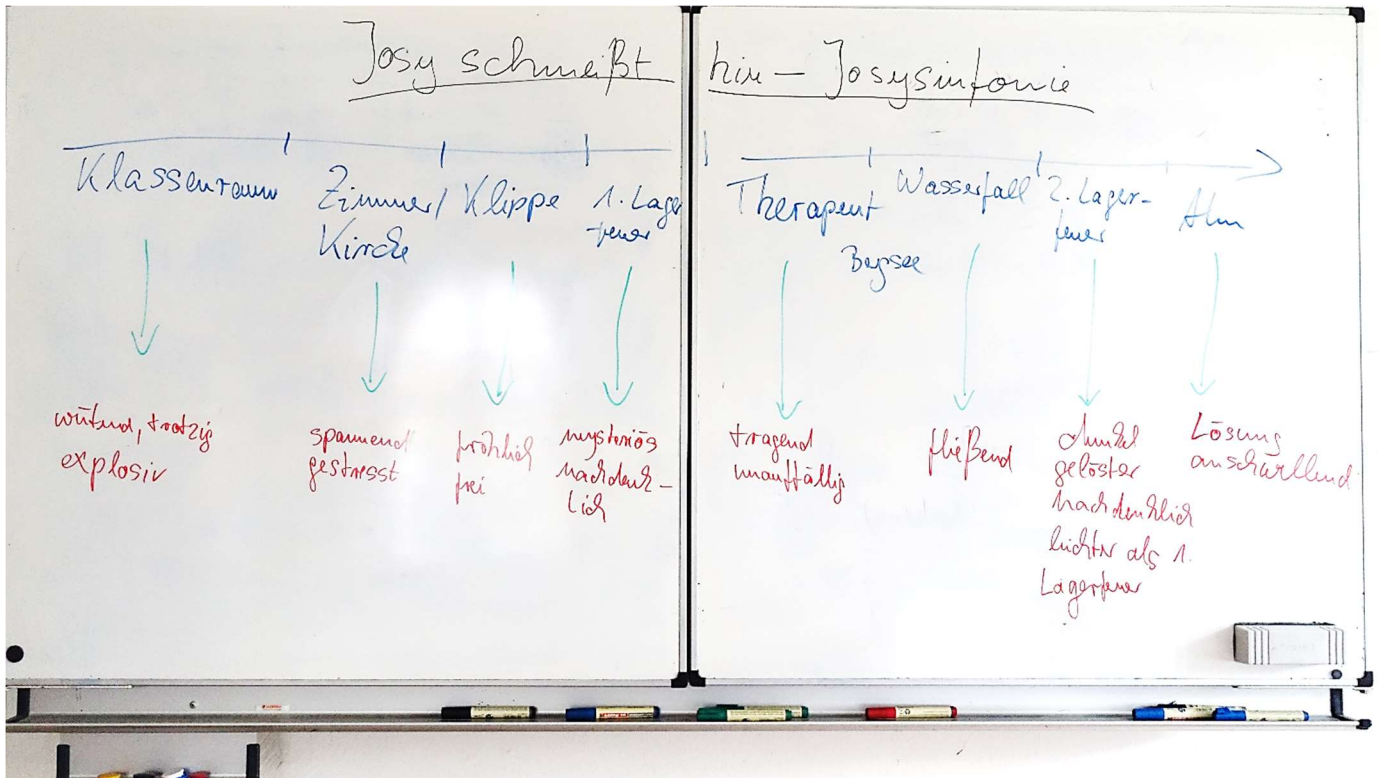 Josy schmeißt hin – Josysinfonie
Klassenraum
Zimmer/
Kirche
Klippe
1. Lager
-feuer
Therapeut
Bergsee
Wasserfall
2. Lager-
feuer
Alm
wütend, trotzig
explosiv
spannend
gestresst
fröhlich
frei
mysteriös
nachdenk-
lich
tragend
unauffällig
fließend
dunkel
gelöster
nachdenklich
leichter als 1.
Lagerfeuer
Lösung
anschwellend